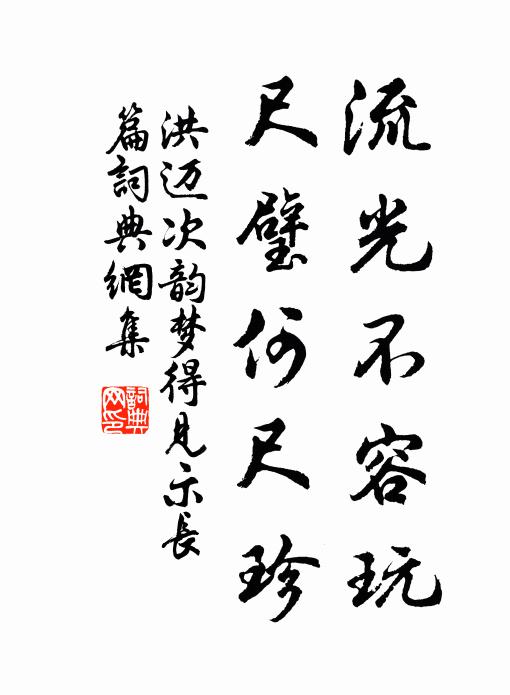 流光不容玩
尺璧何尺珍
洪迈次韵梦得见示长
篇詞典網集
詞典
网印